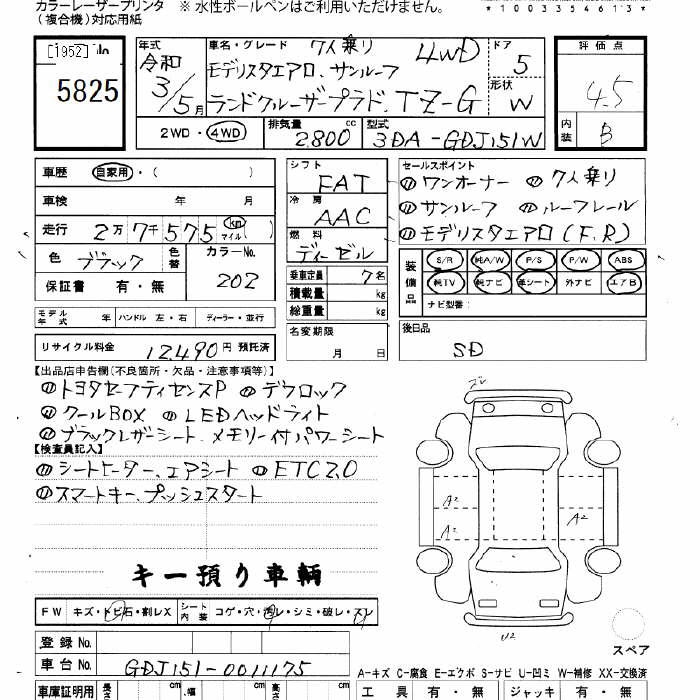 カラーレーザープリンタ ※ 水性ボールペンはご利用いただけません。
(複合機)対応用紙
*1003546113*
[1952] No 5825
年式 令和 3/5月
車名・グレード 7人乗り 4WD
モデリスタエアロ、サンルーフ
ランドクルーザープラド、TZ-G
ドア 5
形状 W
評価点 4.5
内装 B
2WD・4WD 排気量 2800 cc 型式 3DA-GDJ151W
車歴 自家用・( )
車検 年 月
走行 2万7千575 (km マイル)
色 ブラック 色替 カラーNo. 202
保証書 有・無
シフト FAT
冷房 AAC
燃料 ディーゼル
乗車定員 7名
積載量 kg
総重量 kg
セールスポイント
⑪ワンオーナー ⑪7人乗り
⑪サンルーフ ⑪ルーフレール
⑪モデリスタエアロ(F,R)
装備品 S/R 純A/W P/S P/W ABS
純TV 純ナビ 革シート 外ナビ エアB
ナビ型番:
モデル年式 年 ハンドル 左・右 ディーラー・並行
名変期限 月 日
後日品 SD
リサイクル料金 12,490円 預託済
【出品店申告欄(不良箇所・欠品・注意事項等)】
⑪トヨタセーフティセンスP ⑪デフロック
⑪クールBOX ⑪LEDヘッドライト
⑪ブラックレザーシート、メモリー付パワーシート
【検査員記入】
⑪シートヒーター、エアシート ⑪ETC2.0
⑪スマートキー、プッシュスタート
キー預り車輌
FW キズ・トビ石・割レX シート内装 コゲ・穴・汚レ・シミ・破レ・スレ
ズレ
A2
A2
A2
U2
スペア
登録 No.
車台 No. GDJ151-0011175
A-キズ C-腐食 E-エクボ S-サビ U-凹ミ W-補修 XX-交換済
車庫証明用 長さ cm 幅 cm 高さ cm
工具 有・無 ジャッキ 有・無